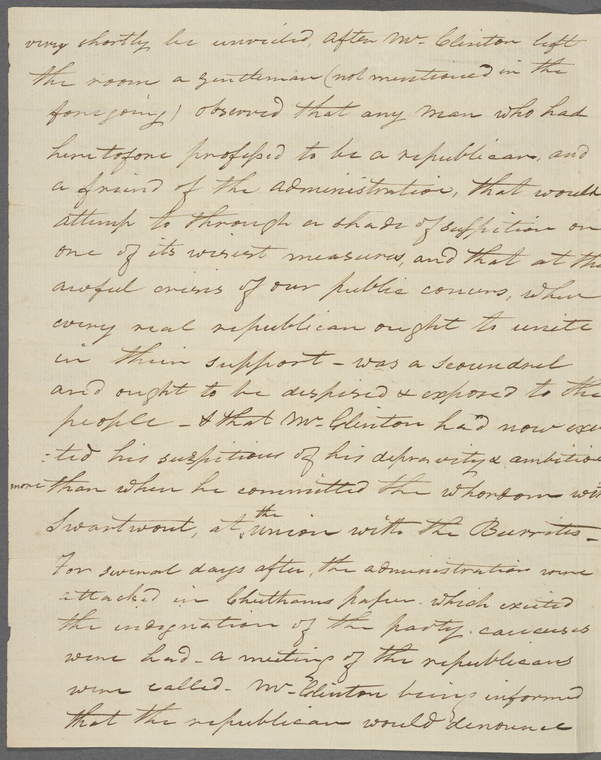 very shortly be unveiled, after Mr. Clinton left
the room a gentleman (not mentioned in the
foregoing) observed that any man who had
heretofore professed to be a republican, and
a friend of the administration, that would
attemp to through a shade of suspition on
one of its wisest measures, and that at the
awful crisis of our public concerns, when
every real republican ought to unite
in their support - was a scoundrel
and ought to be despised & exposed to the
people - & that Mr. Clinton had now exci
-ted his suspitions of his depravity & ambition
more than when he committed the whoredom with
Swartwout, at the Union with the Burrites -
For several days after, the administration were
attacked in Cheethams paper. which excited
the indignation of the party. caucuses
were had - a meeting of the republicans
were called - Mr. Clinton being informed
that the republican would denounce